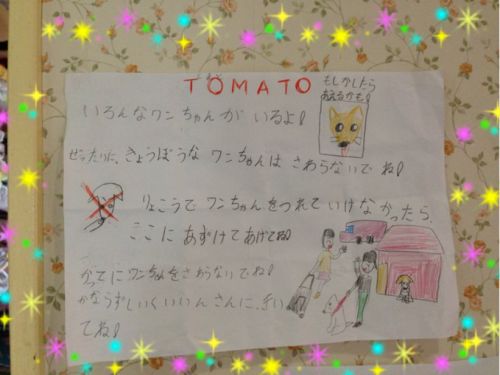 TOMATO
もしかしたら
あえるかも!
いろんなワンちゃんが いるよ!
ぜったいに、きょうぼうな ワンちゃんは さわらないでね!
りょこうで ワンちゃんを つれて いけなかったら、
ここに あずけてあげてね!
かってにワンちゃんをさわらないでね!
かならずしいくいいんさんに、きい
てね!